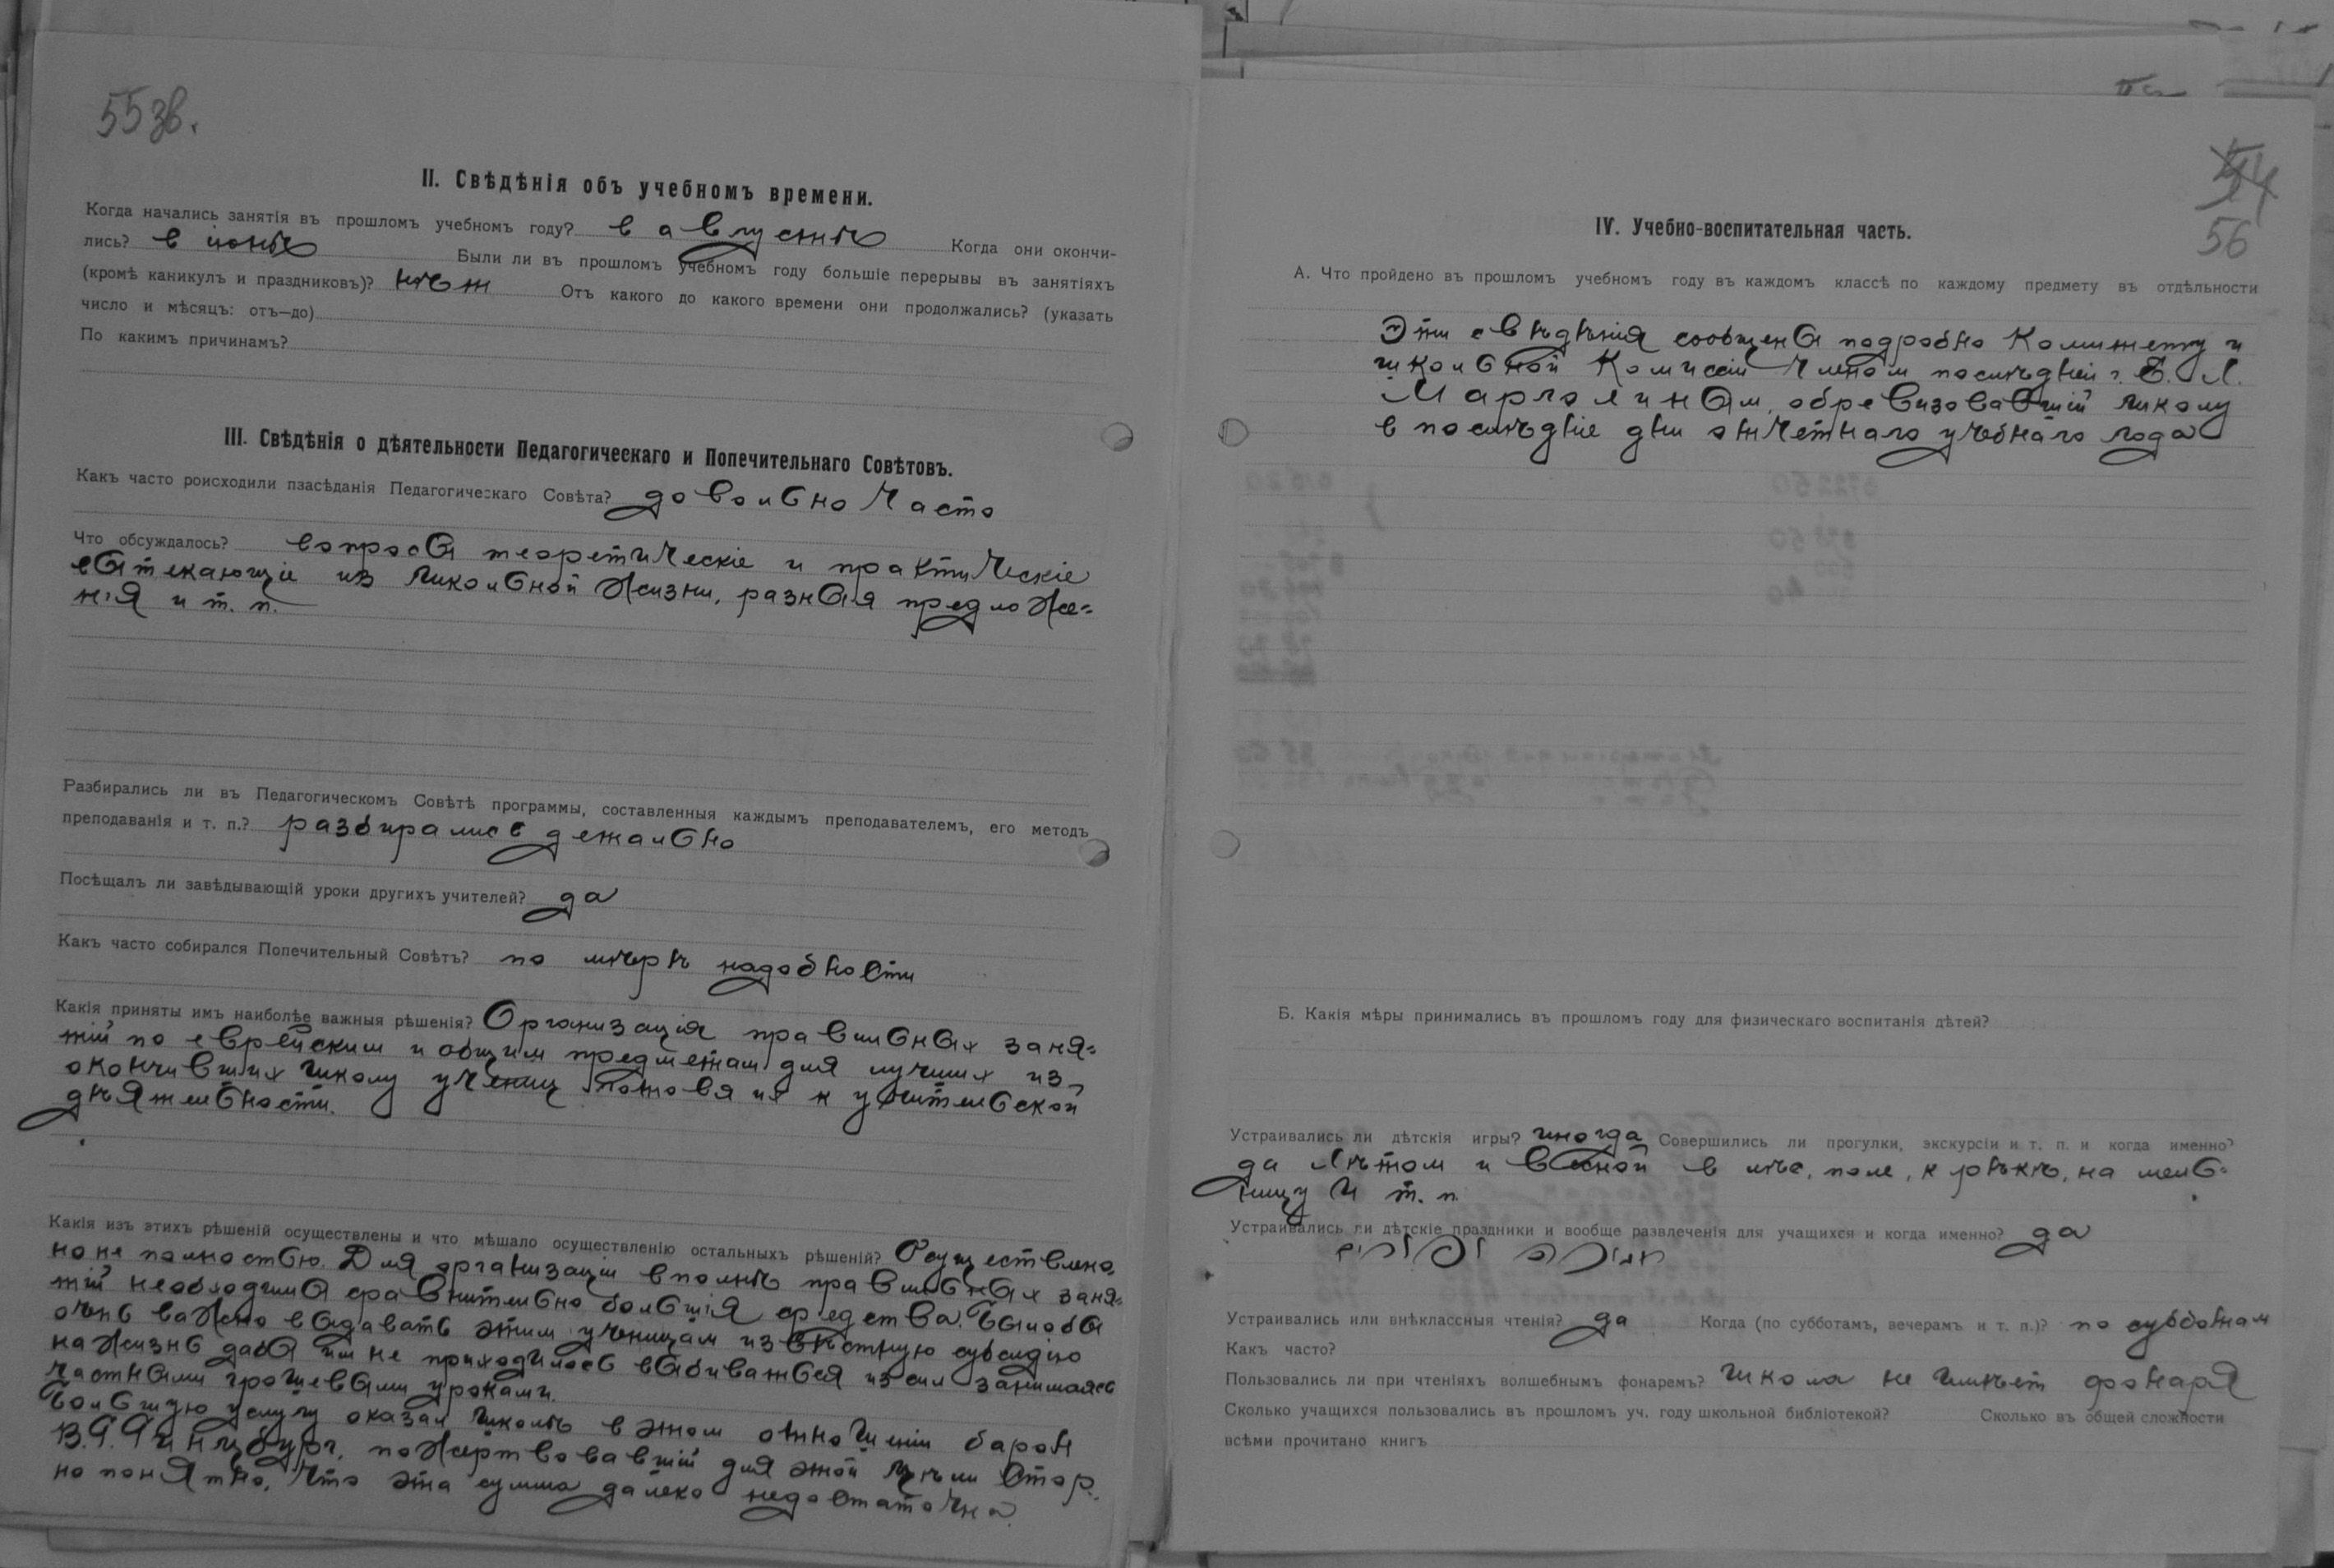 55 об.
II. Свѣдѣнія объ учебномъ времени.
Когда начались занятія въ прошломъ учебномъ году? в августѣ Когда они окончи-
лись? в іюнѣ Были ли въ прошломъ учебномъ году большіе перерывы въ занятіяхъ
(кромѣ каникулъ и праздниковъ)? нѣт Отъ какого до какого времени они продолжались? (указать
число и мѣсяцъ: отъ—до)
По какимъ причинамъ?
III. Свѣдѣнія о дѣятельности Педагогическаго и Попечительнаго Совѣтовъ.
Какъ часто роисходили пзасѣданія Педагогическаго Совѣта? довольно часто
Что обсуждалось? вопросы теоретическіе и практическіе
вытекающіе из школьной жизни, разныя предложе=
нія и т. п.
Разбирались ли въ Педагогическомъ Совѣтѣ программы, составленныя каждымъ преподавателемъ, его методъ
преподаванія и т. п.? разбирались детально
Посѣщалъ ли завѣдывающій уроки другихъ учителей? да
Какъ часто собирался Попечительный Совѣтъ? по мѣрѣ надобности
Какія приняты имъ наиболѣе важныя рѣшенія? Организація правильных заня=
тій по еврейским и общим предметам для лучших из
окончивших школу учениц готовя их к учительской
дѣятельности.
Какія изъ этихъ рѣшеній осуществлены и что мѣшало осуществленію остальныхъ рѣшеній? Осуществлено,
но не полностью. Для организаціи вполнѣ правильных заня=
тій необходимы сравнительно большія средства. Было бы
очень важно выдавать этим ученицам извѣстную субсидію
на жизнь дабы им не приходилось выбиваться из сил занимаясь
частными грошевыми уроками.
Большую услугу оказал школѣ в этом отношеніи барон
В.Г. Гинцбург, пожертвовавшій для этой цѣли Стор.
но понятно, что эта сумма далеко недостаточна.
54
56
IV. Учебно-воспитательная часть.
А. Что пройдено въ прошломъ учебномъ году въ каждомъ классѣ по каждому предмету въ отдѣльности
Эти свѣдѣнія сообщены подробно Комитету и
школьной Комиссіи членом послѣдней г. Е. Л.
Марголиным, обревизовавшій школу
в послѣдніе дни отчетнаго учебнаго года
Б. Какія мѣры принимались въ прошломъ году для физическаго воспитанія дѣтей?
Устраивались ли дѣтскія игры? иногда Совершились ли прогулки, экскурсіи и т. п. и когда именно?
да лѣтом и весной в лѣс, поле, к рѣкѣ, на мель=
ницу и т. п.
Устраивались ли дѣтскіе праздники и вообще развлеченія для учащихся и когда именно? да
חנוכה ופורים
Устраивались или внѣклассныя чтенія? да Когда (по субботамъ, вечерамъ и т. п.)? по субботам
Какъ часто?
Пользовались ли при чтеніяхъ волшебнымъ фонаремъ? школа не имѣет фонаря
Сколько учащихся пользовались въ прошломъ уч. году школьной библіотекой? Сколько въ общей сложности
всѣми прочитано книгъ